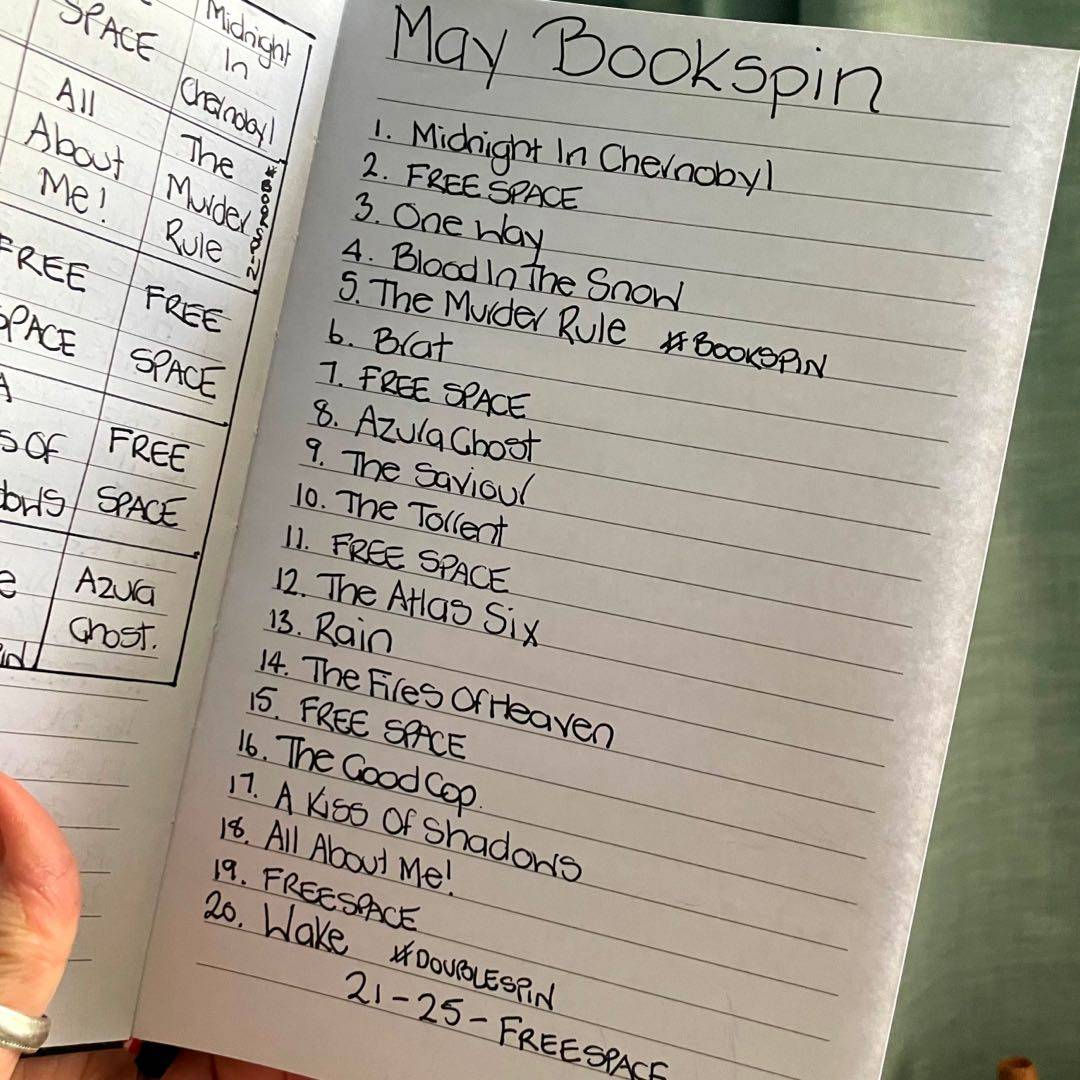 SPACE
Midnight
In
Chernobyl
All
About
Me!
The
Murder
Rule
#BOOKSPIN
FREE
SPACE
FREE
SPACE
A
s Of
dows
FREE
SPACE
e
Azula
Ghost.
May Bookspin
1. Midnight In Chernobyl
2. FREE SPACE
3. One Way
4. Blood In The Snow
5. The Murder Rule #BOOKSPIN
6. Brat
7. FREE SPACE
8. Azula Ghost
9. The Saviour
10. The Torrent
11. FREE SPACE
12. The Atlas Six
13. Rain
14. The Fires Of Heaven
15. FREE SPACE
16. The Good Cop.
17. A Kiss Of Shadows
18. All About Me!
19. FREESPACE
20. Wake #DOUBLESPIN
21-25- FREESPACE